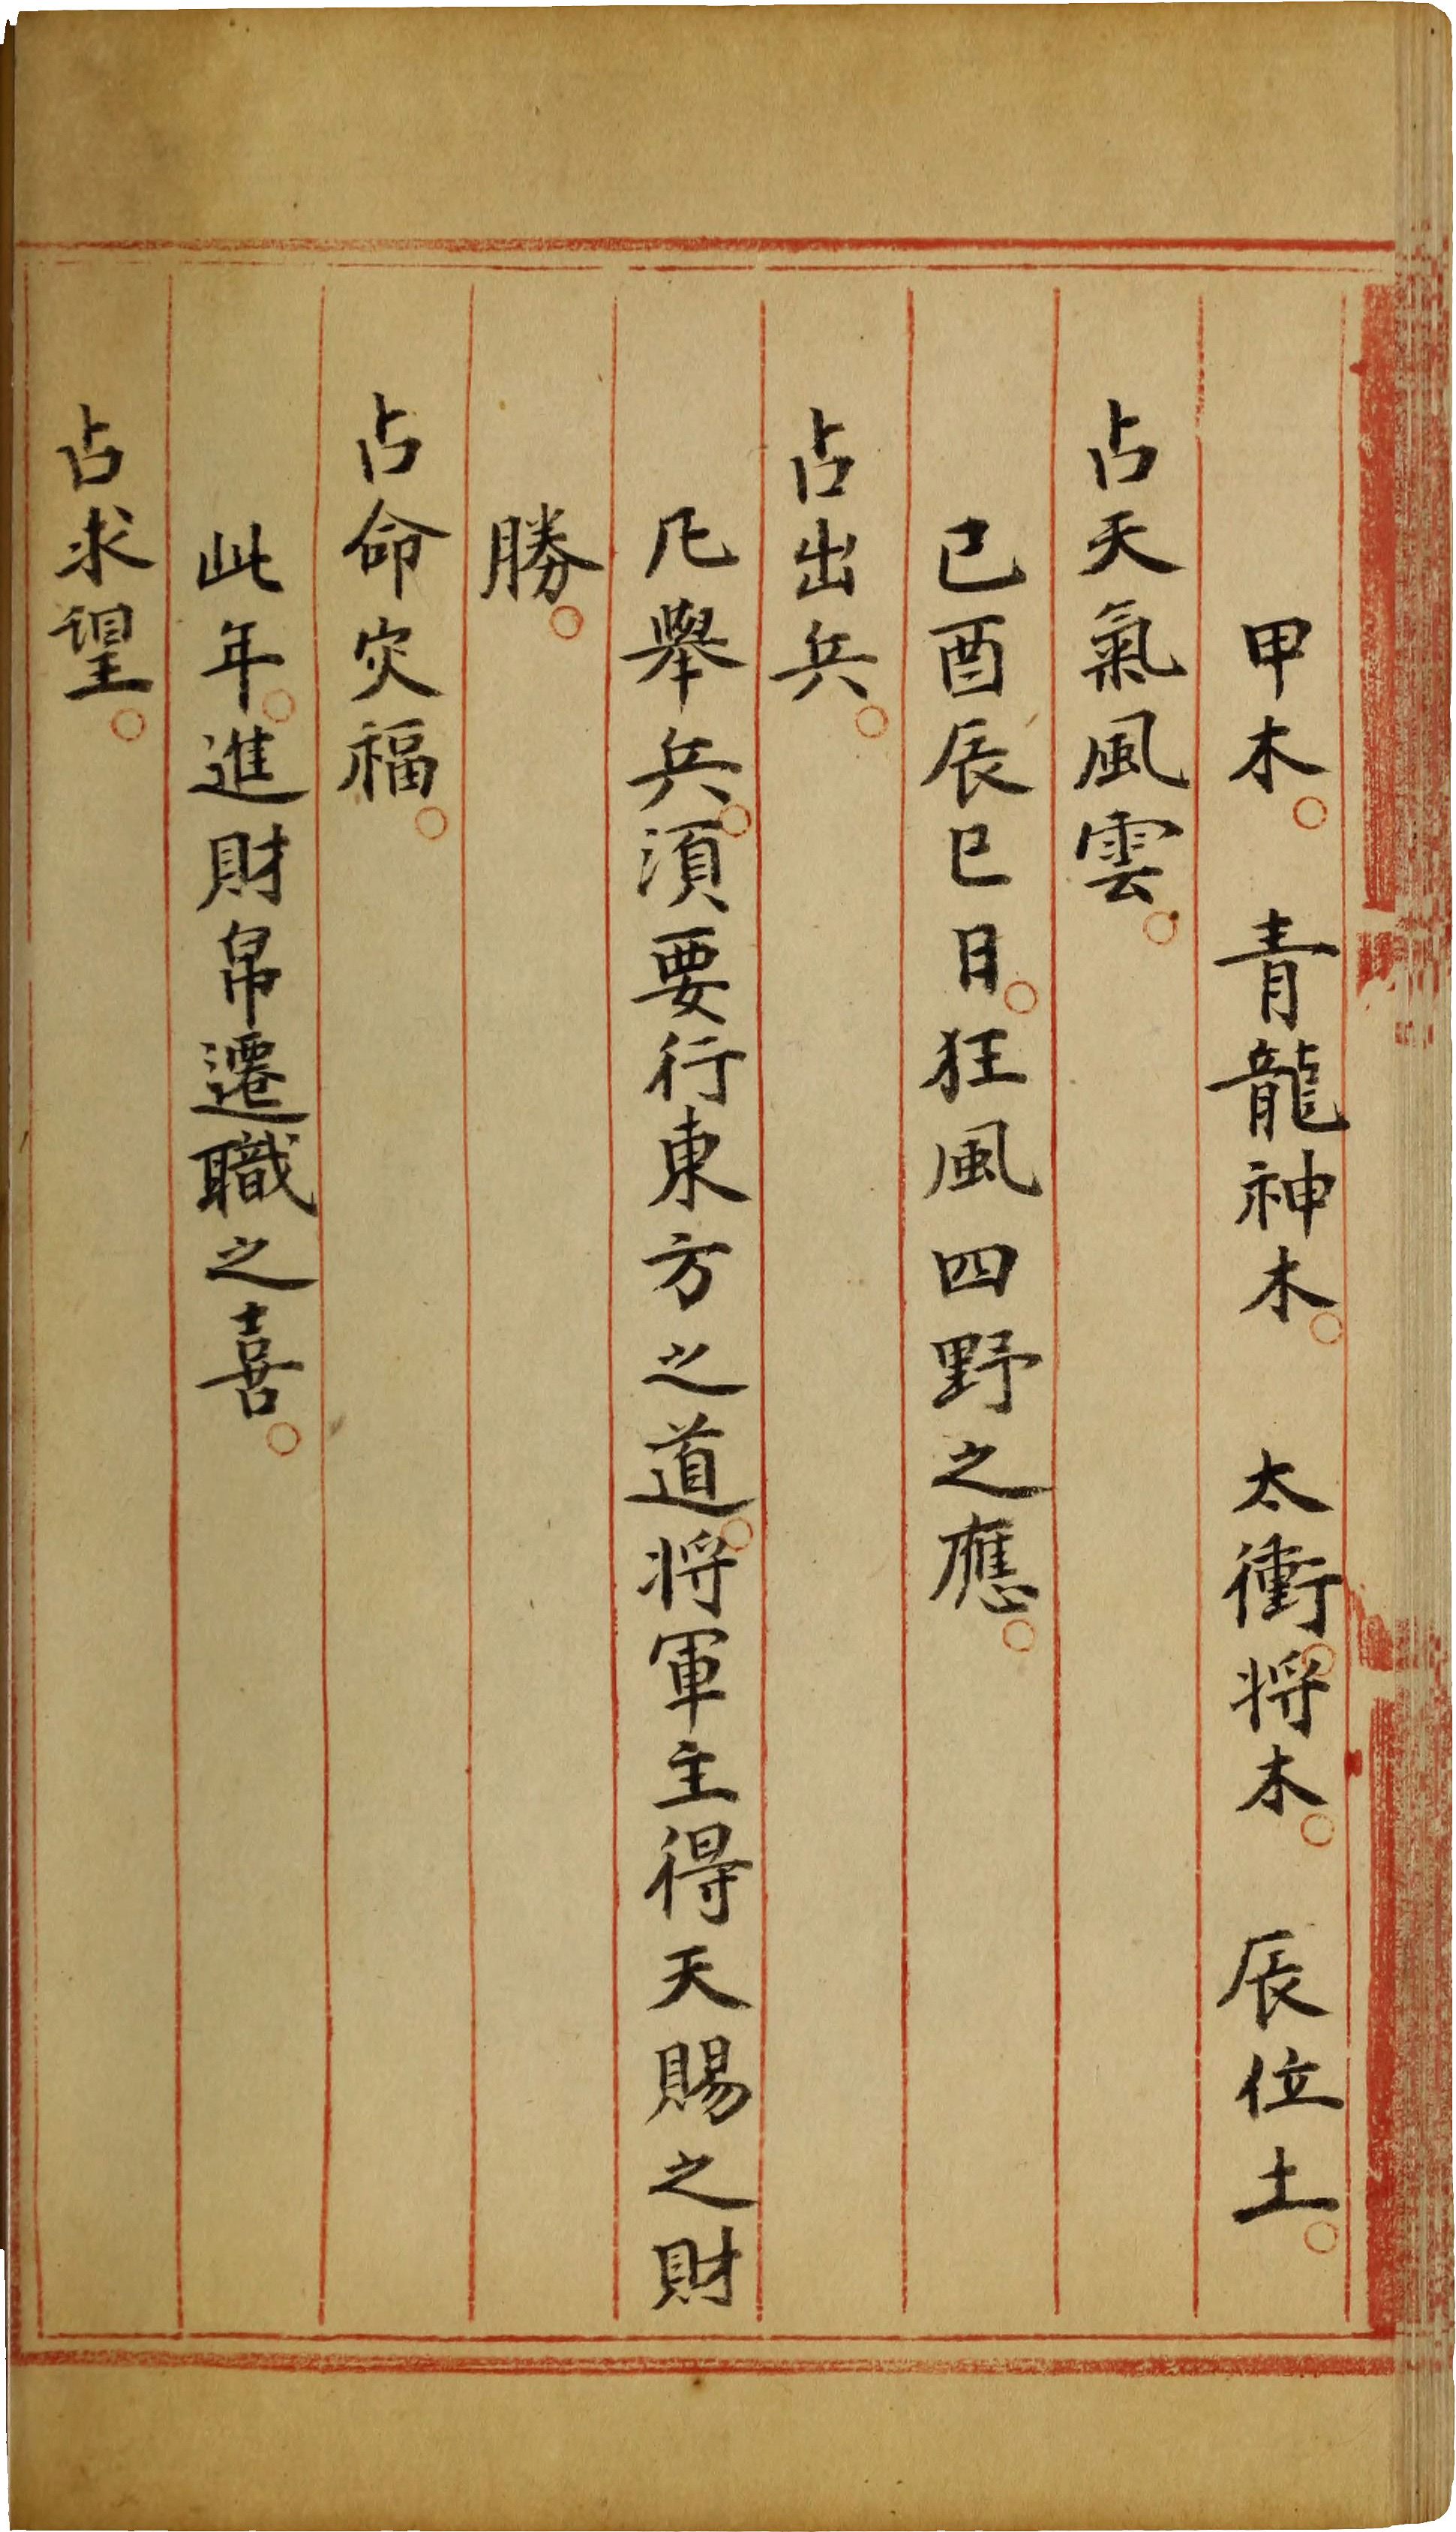 甲木。　青龍神木。　太衝。将木。　辰位土。
占天氣風雲。
已酉辰巳日。狂風四野之應。
占出兵。
凡舉兵。須要行東方之道。将軍主得天賜之財
勝。
占命灾福。
此年。進財帛遷職之喜。
占求望。